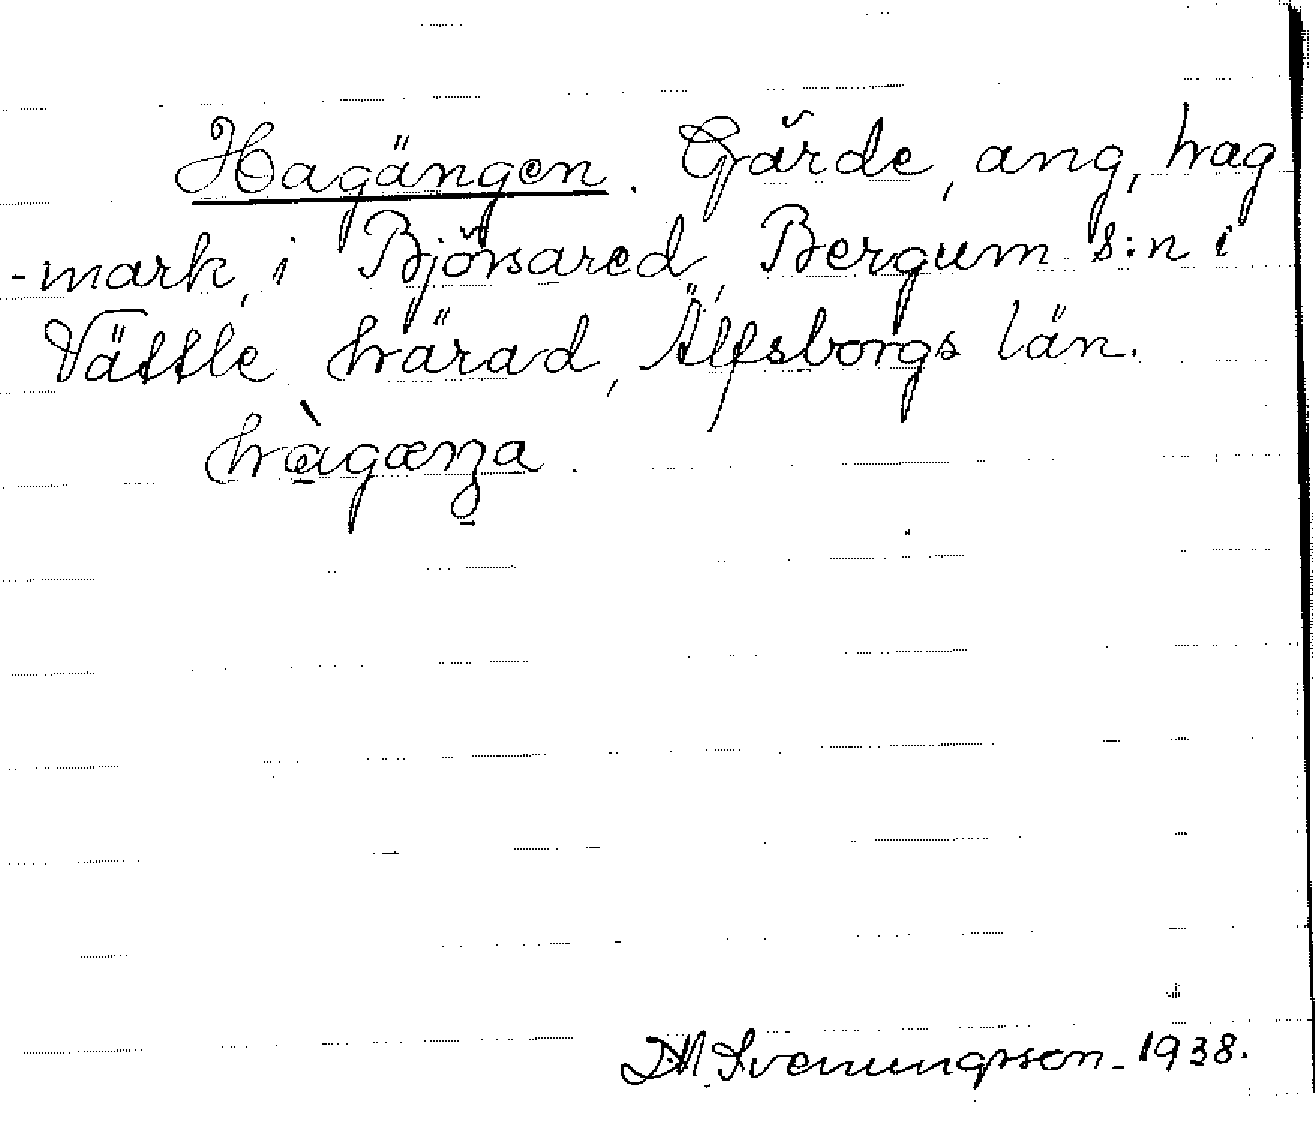 Hagängen. Gärde, äng, hag
-mark, i Björsared, Bergum s:n i
Vättle härad, Älfsborgs län.
hàgæŋa.
D.M. Svenungsson - 1938.